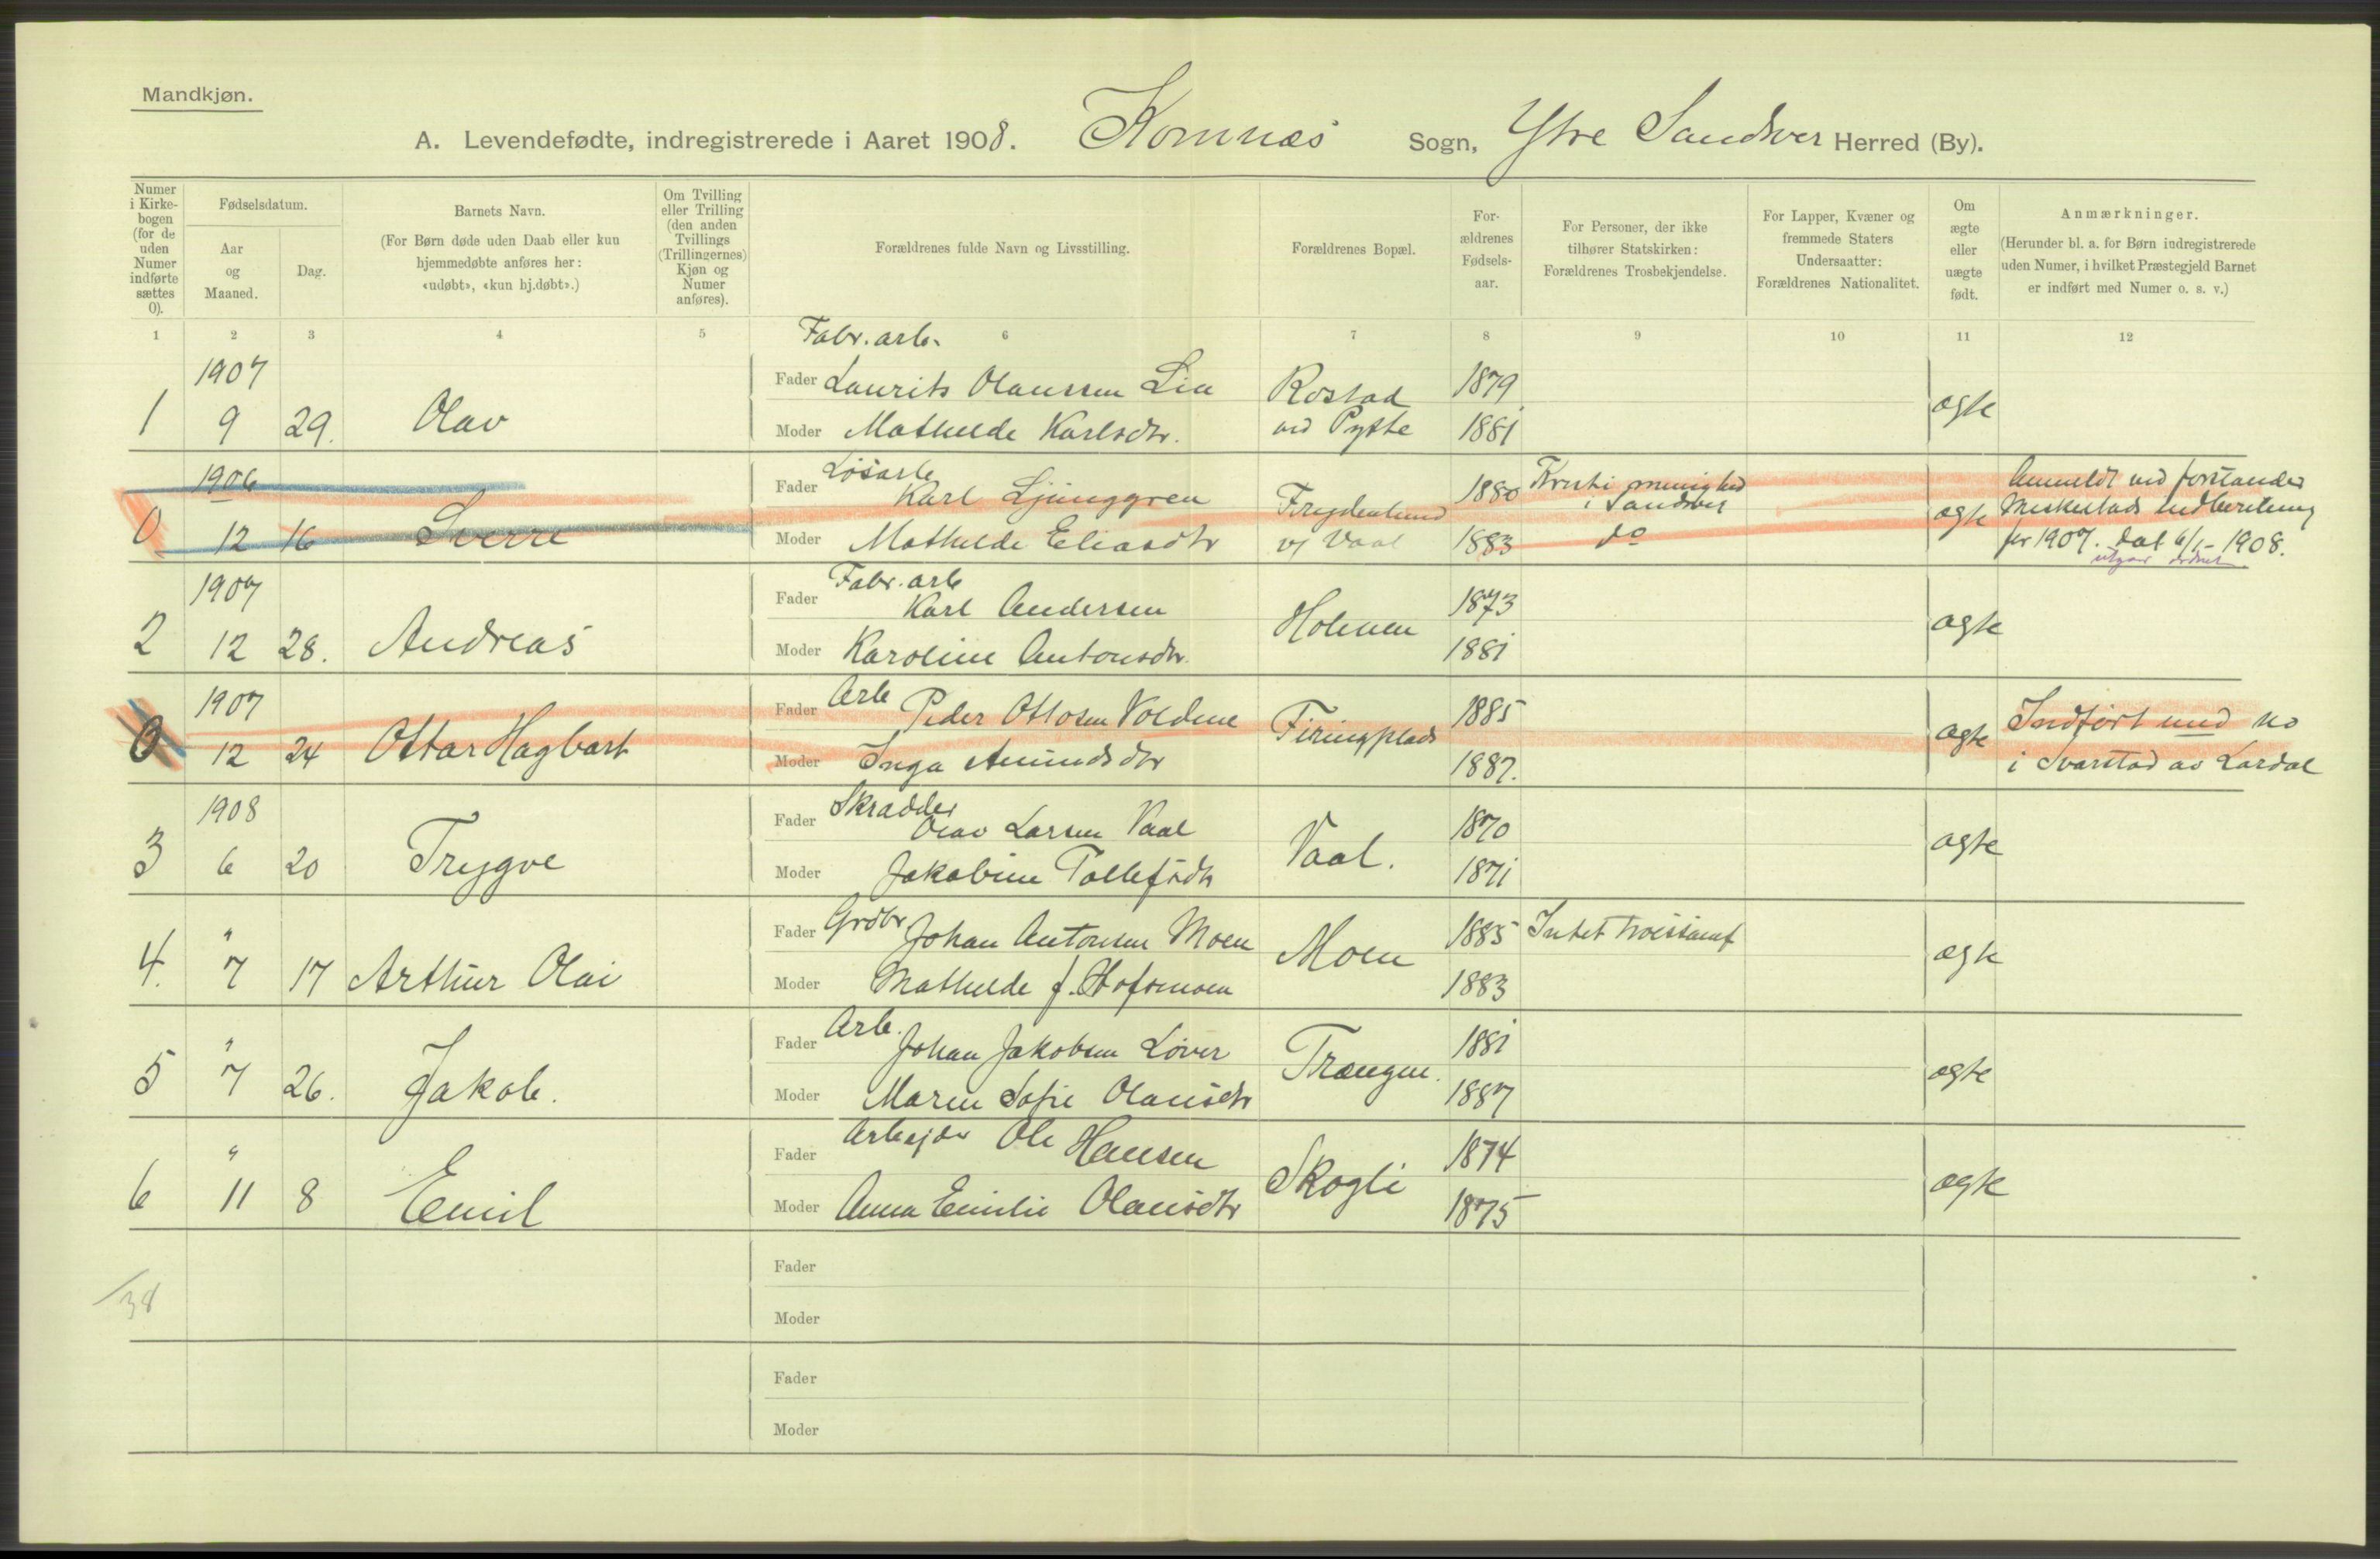 Mandkjøn.
A. Levendefødte, indregistrerede i Aaret 1908. Komnæs Sogn, Ytre Sandsver Herred (By).
Numer i Kirkebogen (for de uden Numer indførte sættes 0).
Fødselsdatum.
Aar og Maaned.
Dag.
Barnets Navn.
(For Børn døde uden Daab eller kun hjemmedøbte anføres her: «udøbt», «kun hj.døbt».)
Om Tvilling eller Trilling (den anden Tvillings (Trillingernes) Kjøn og Numer anføres).
Forældrenes fulde Navn og Livsstilling.
Forældrenes Bopæl.
Forældrenes Fødselsaar.
For Personer, der ikke tilhører Statskirken: Forældrenes Trosbekjendelse.
For Lapper, Kvæner og fremmede Staters Undersaatter: Forældrenes Nationalitet.
Om ægte eller uægte født.
Anmærkninger.
(Herunder bl. a. for Børn indregistrerede uden Numer, i hvilket Præstegjeld Barnet er indført med Numer o. s. v.)
1 2 3 4 5 6 7 8 9 10 11 12
Fabr. arb.
1907
Fader Laurits Olaussen Lia Rostad 1879
1 9 29. Olav ægte
Moder Mathilde Karlsdtr. ved Pytte 1881
1906 Løsarb
Fader Karl Ljunggren Frydenlund 1880 Kristi menighed i Sandsver Anmeldt ved forstander
0 12 16 Sverre ægte indberetning
Moder Mathilde Eliasdtr v/ Vaal 1883 do for 1907. Dat 6/1-1908.
1907 Fabr. arb
Fader Karl Andersen 1873
2 12 28. Andreas Holmen ægte
Moder Karoline Antonsdtr. 1881
1907 Arb
Fader Peder Ottosen Voldene 1885 Indført med no
0 12 24 Ottar Hagbart Firingplads ægte
Moder Inga Amundsdtr 1887. i Svarstad av Lardal
1908 Skrædder
Fader Olav Larsen Vaal 1870
3 6 20 Trygve Vaal. ægte
Moder Jakobine Tollefsdtr 1871
Grdbr
" Fader Johan Antonsen Moen 1885 Intet troessamf
4. 7 17 Arthur Olai Moen ægte
Moder Mathilde f. Hofsmoen 1883
Arb.
" Fader Johan Jakobsen Løver 1881
5 7 26. Jakob. Trængen. ægte
Moder Maren Sofie Olausdtr 1887
" Fader Arbejder Ole Hansen 1874
6 11 8 Emil Skogli ægte
Moder Anna Emilie Olausdtr 1875
Fader
/38
Moder
Fader
Moder